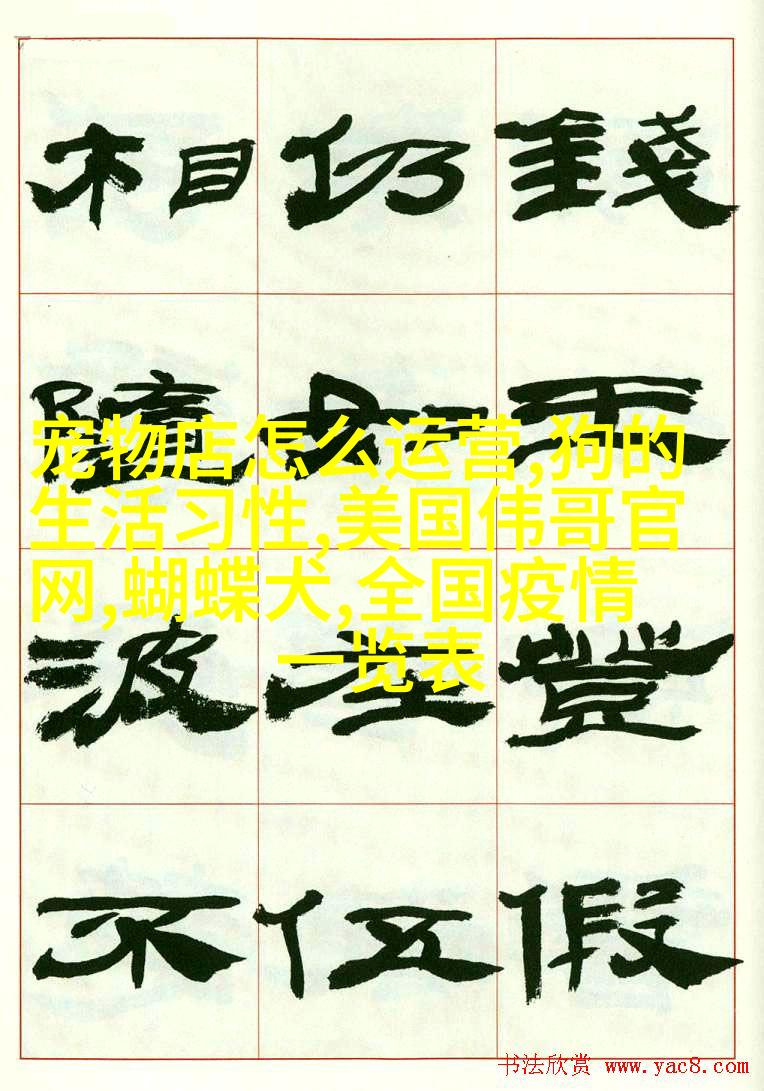 錢天豈假
仍伍
相隨波不
宠物店怎么运营,狗的
生活习性,美国伟哥官
网,蝴蝶犬,全国疫情
一览表
书法欣赏 www.yac8.com